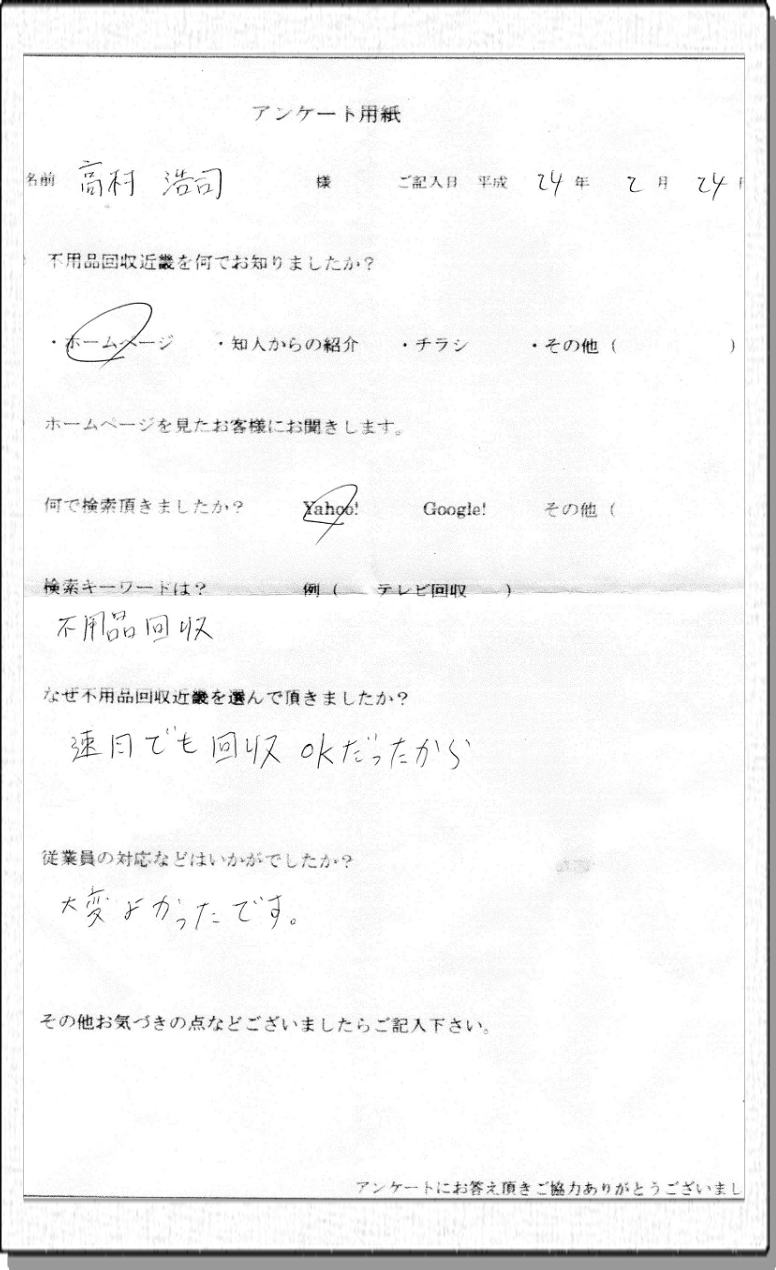 アンケート用紙
名前 高村 浩司 様 ご記入日 平成 24 年 2 月 24
不用品回収近畿を何でお知りましたか?
・ホームページ ・知人からの紹介 ・チラシ ・その他 ( )
ホームページを見たお客様にお聞きします。
何で検索頂きましたか? Yahoo! Google! その他 (
検索キーワードは? 例 ( テレビ回収 )
不用品回収
なぜ不用品回収近畿を選んで頂きましたか?
速日でも回収OKだったから
従業員の対応などはいかがでしたか?
大変よかったです。
その他お気づきの点などございましたらご記入下さい。
アンケートにお答え頂きご協力ありがとうございまし